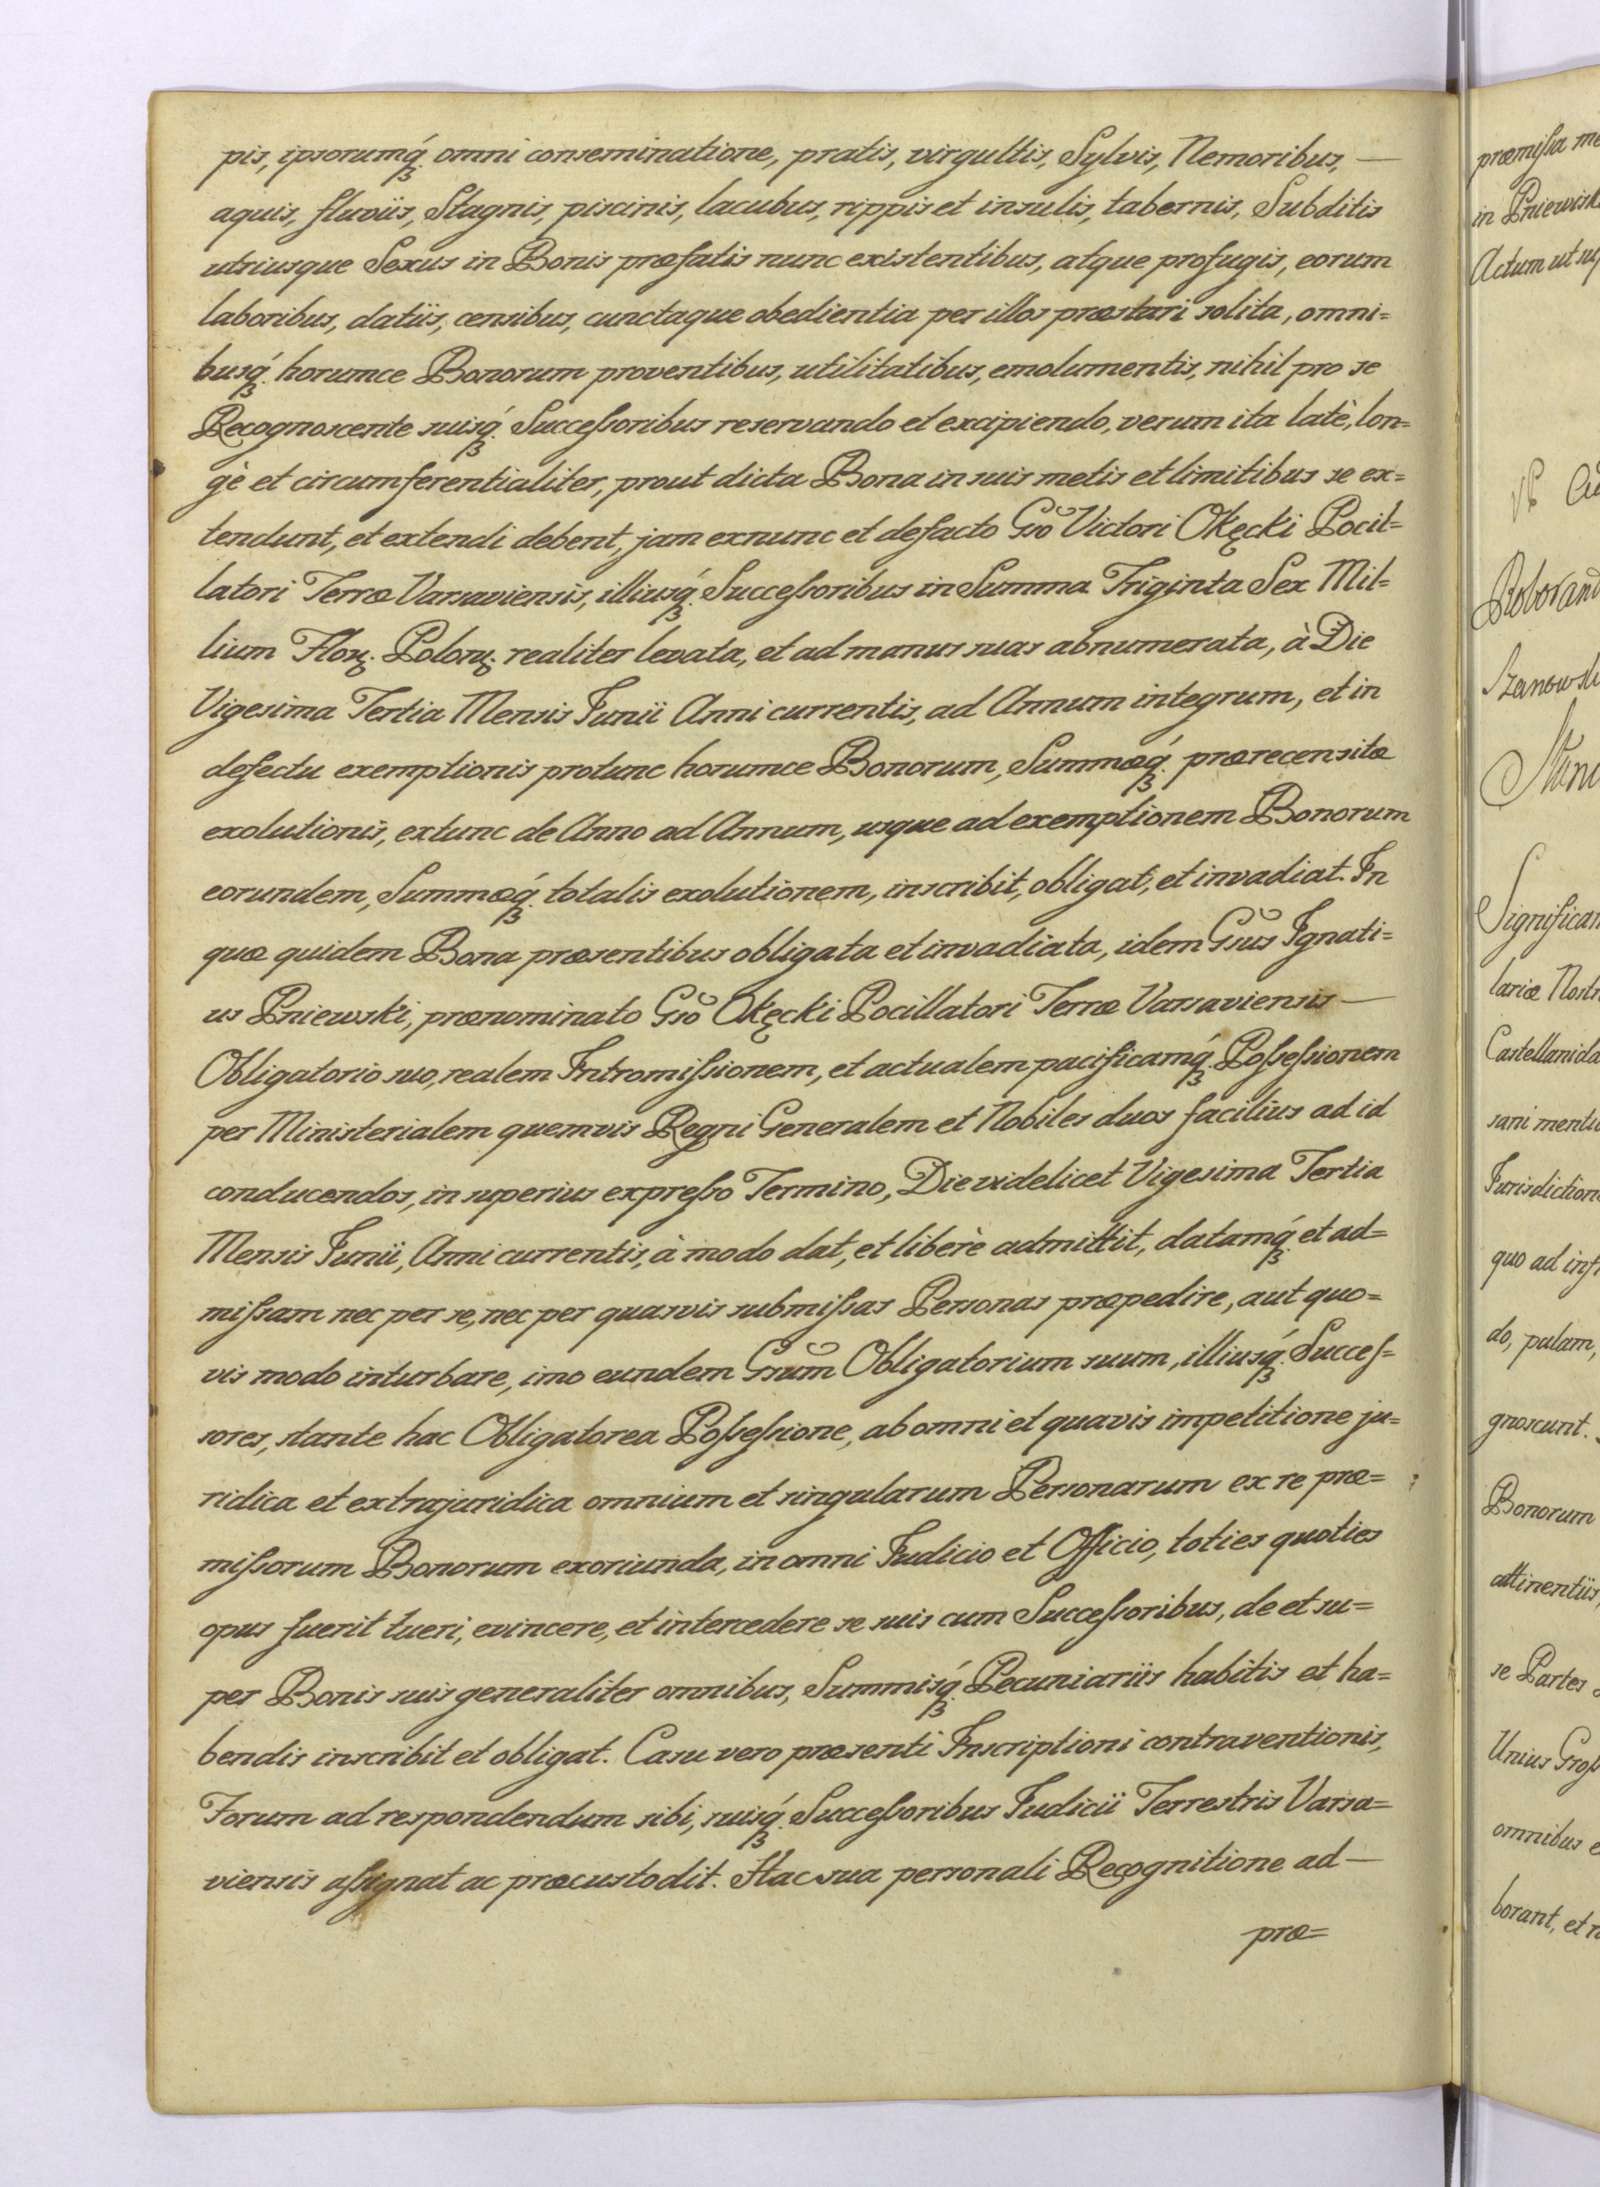 pis, ipsorumq́ꝫ omni conseminatione, pratis, virgultis, Sylvis, Nemoribus, —
aquis, fluviis, Stagnis, piscinis, lacubus, rippis et insulis, tabernis, Subditis
utriusque Sexus in Bonis præfatis nunc existentibus, atque profugis, eorum
laboribus, datiis, censibus, cunctaque obedientia per illos præstari solita, omni=
busq́ꝫ horumce Bonorum proventibus, utilitatibus, emolumentis, nihil pro se
Recognoscente suisq́ꝫ Succeſsoribus reservando et excipiendo, verum ita latè, lon=
gè et circumferentialiter, prout dicta Bona in suis metis et limitibus se ex=
tendunt, et extendi debent, jam exnunc et defacto Gso Victori Okęcki Pocil=
latori Terræ Varsaviensis, illiusq́ꝫ Succeſsoribus in Summa Triginta Sex Mil=
lium Floꝝ. Polonꝝ. realiter levata, et ad manus suas abnumerata, à Die
Vigesima Tertia Mensis Junii Anni currentis, ad Annum integrum, et in
defectu exemptionis protunc horumce Bonorum, Summæq́ꝫ prærecensitæ
exolutionis, extunc de Anno ad Annum, usque ad exemptionem Bonorum
eorundem, Summæq́ꝫ totalis exolutionem, inscribit, obligat, et invadiat. In
quæ quidem Bona præsentibus obligata et invadiata, idem Gsus Ignati=
us Pniewski, prænominato Gso Okęcki Pocillatori Terræ Varsaviensis —
Obligatorio suo, realem Intromiſsionem, et actualem pacificamq́ꝫ Poſseſsionem
per Ministerialem quemvis Regni Generalem et Nobiles duos facilius ad id
conducendos, in superius expreſso Termino, Die videlicet Vigesima Tertia
Mensis Junii, Anni currentis, à modo dat, et liberè admittit, datamq́ꝫ et ad=
miſsam nec per se, nec per quasvis submiſsas Personas præpedire, aut quo=
vis modo inturbare, imo eundem Gsum Obligatorium suum, illiusq́ꝫ Succeſ=
sores, stante hac Obligatorea Poſseſsione, ab omni et quavis impetitione ju=
ridica et extrajuridica omnium et singularum Personarum ex re præ=
miſsorum Bonorum exoriunda, in omni Judicio et Officio, toties quoties
opus fuerit tueri, evincere, et intercedere se suis cum Succeſsoribus, de et su=
per Bonis suis generaliter omnibus, Summisq́ꝫ Pecuniariis habitis et ha=
bendis inscribit et obligat. Casu vero præsenti Inscriptioni contraventionis,
Forum ad respondendum sibi, suisq́ꝫ Succeſsoribus Judicii Terrestris Varsa=
viensis aſsignat ac præcustodit. Hac sua personali Recognitione ad —
præ=
præmiſsa
in
Actum ut
Significan
lariæ
Castellanida
sani
Jurisdiction
quo ad
do, palam,
gnoscunt.
Bonorum
attinentiis,
se Partes
Unius
omnibus
borant, et